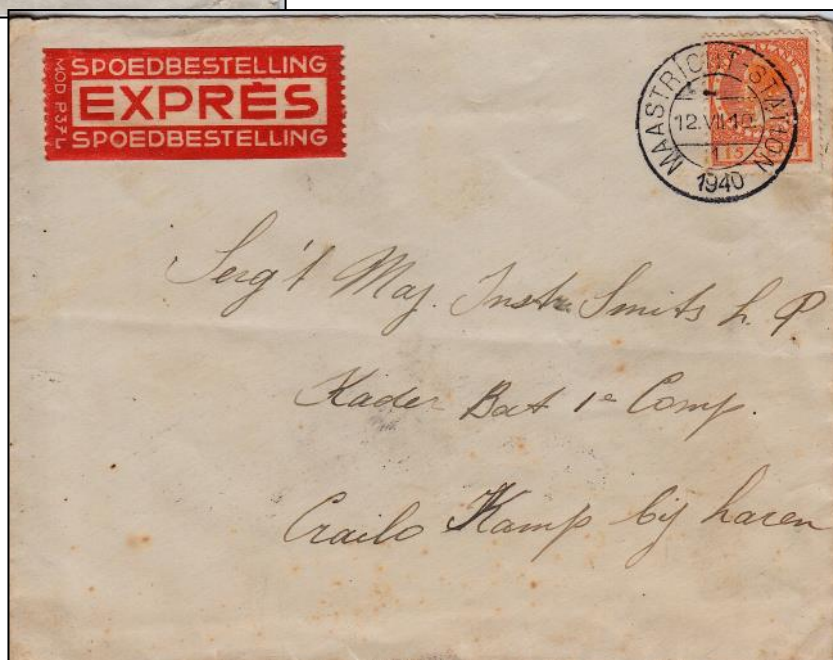 SPOEDBESTELLING
EXPRÈS
SPOEDBESTELLING
MOD P37L
MAASTRICHT-STATION
12.VII.10
1940
15
Serg't Maj. Instr. Smits L. P.
Kader Bat 1e Comp.
Crailo Kamp bij Laren